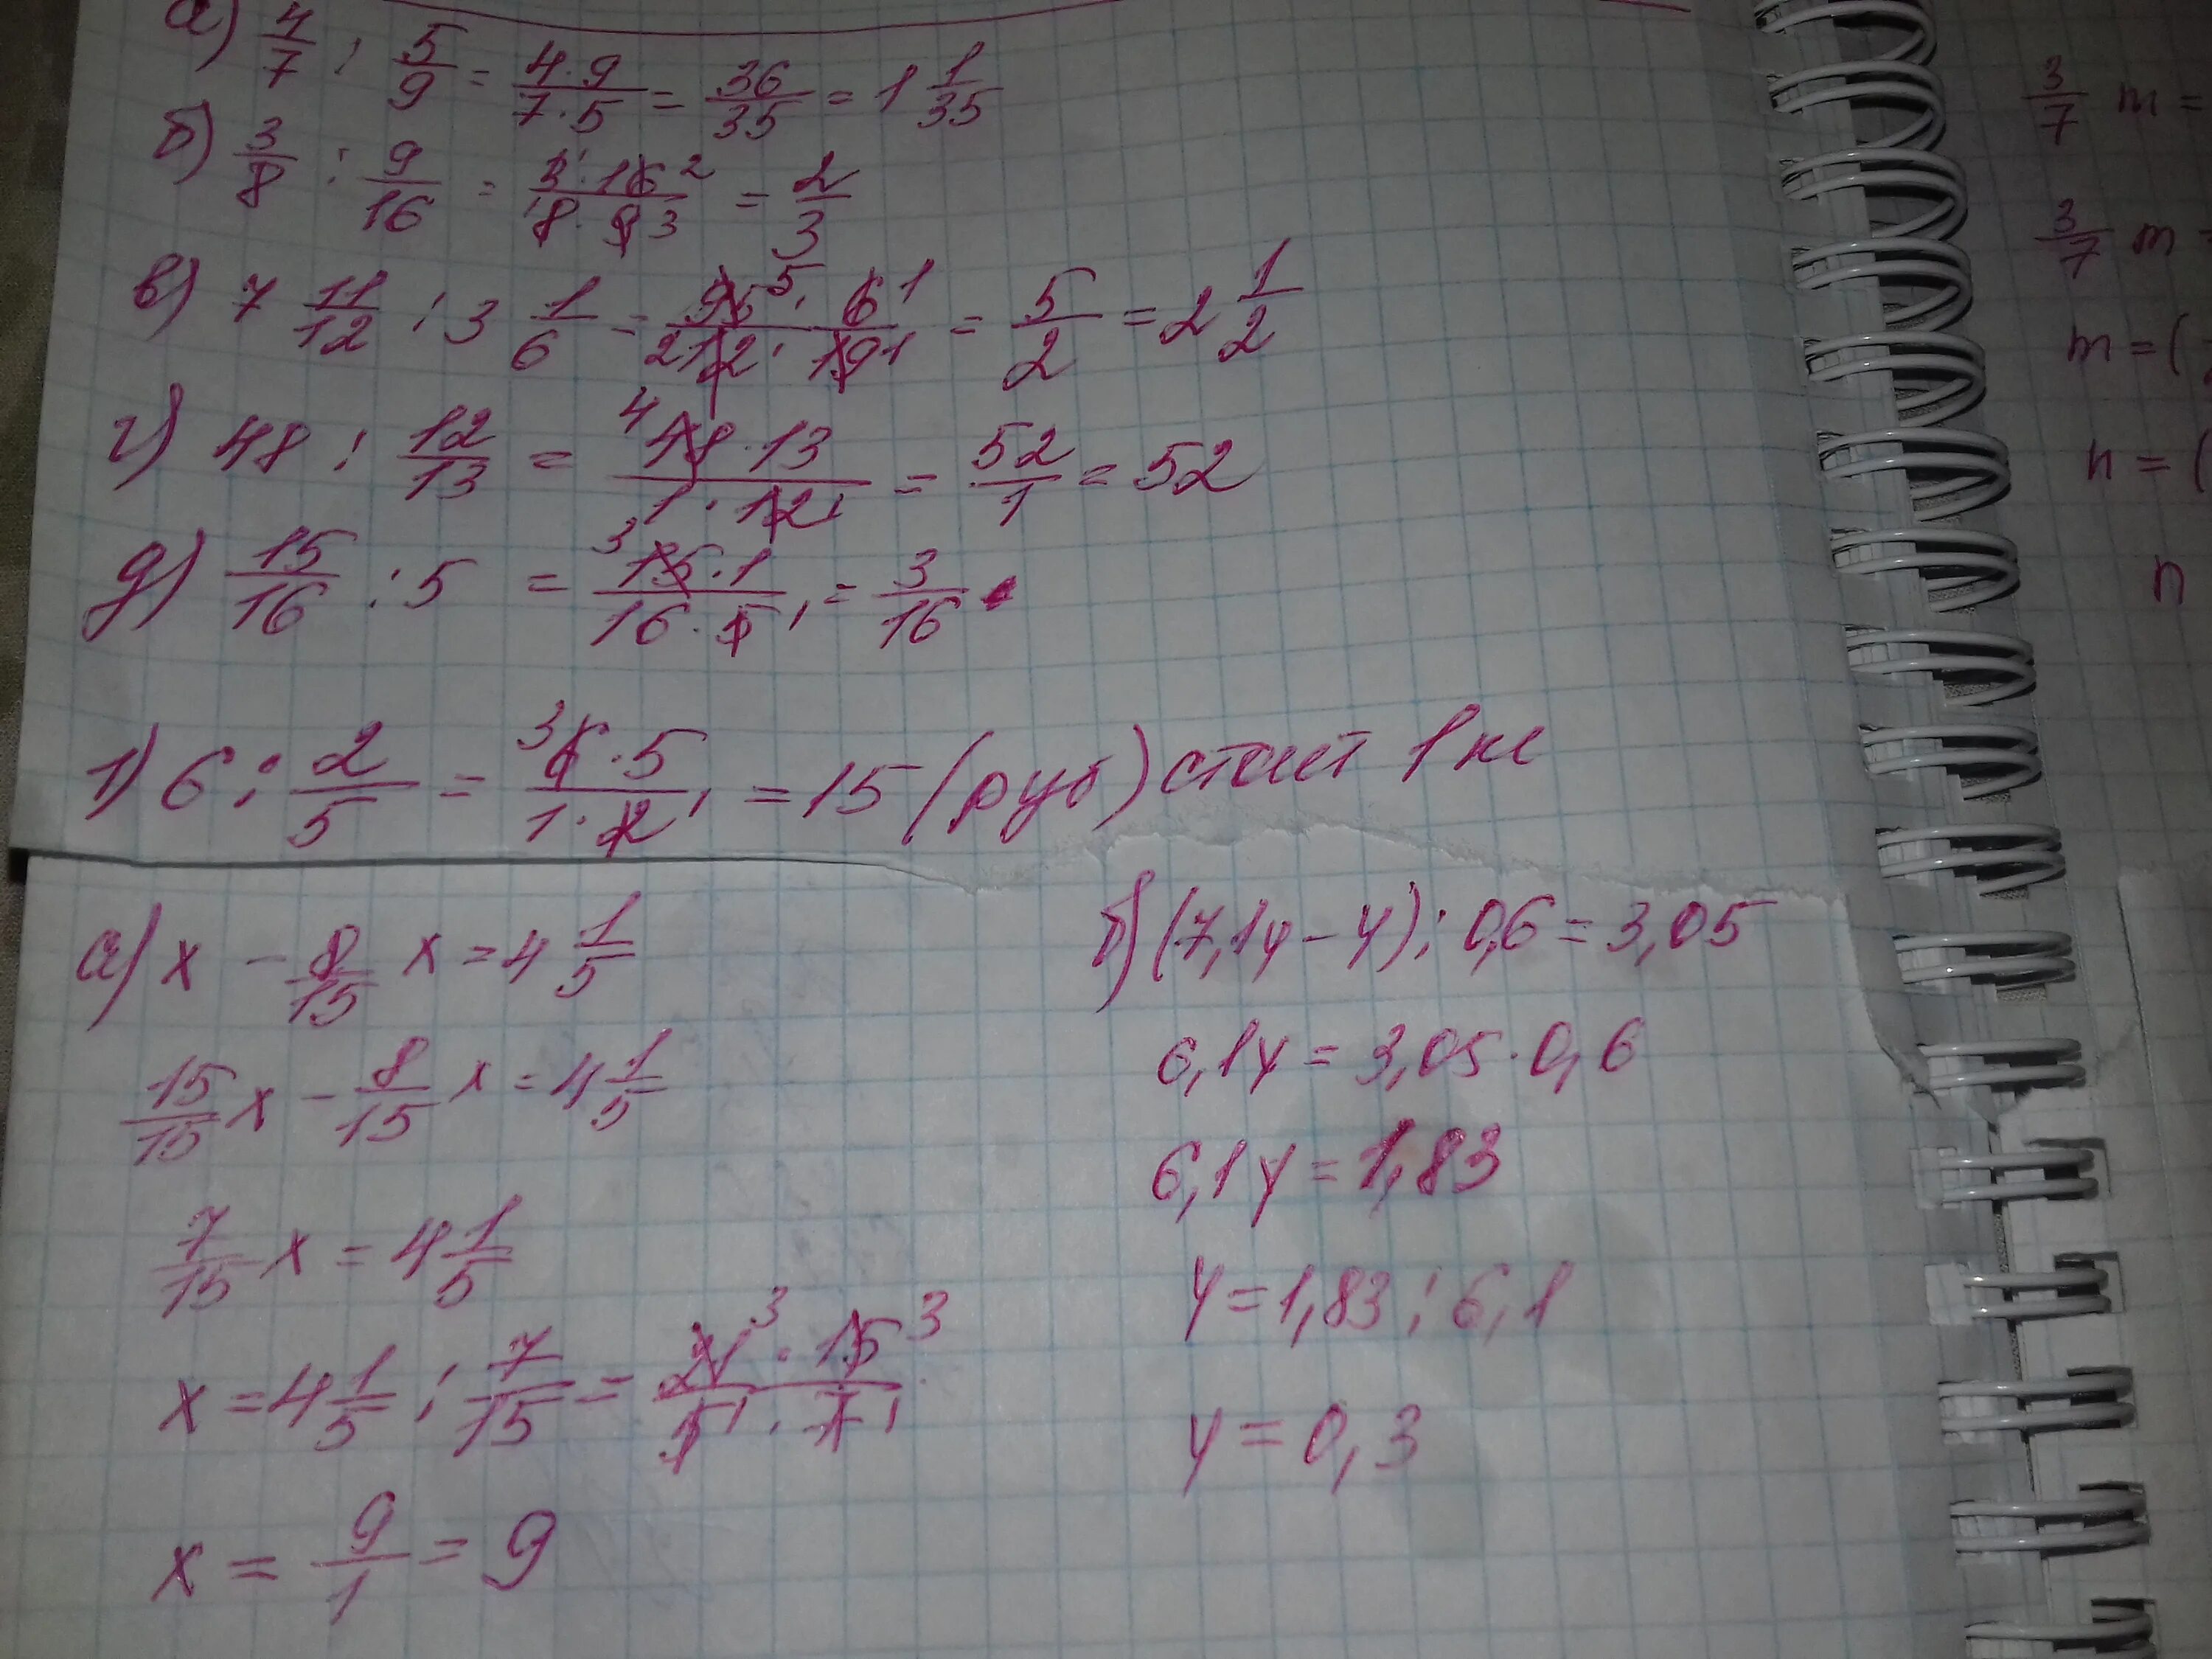 а) 4/7 : 5/9 = 4·9/7·5 = 36/35 = 1 1/35
б) 3/8 : 9/16 = 3¹·16²/¹8·9³ = 2/3
в) 7 11/12 : 3 1/6 = 95⁵·6¹/²12·19¹ = 5/2 = 2 1/2
г) 48 : 12/13 = ⁴48·13/1·12¹ = 52/1 = 52
д) 15/16 : 5 = ³15·1/16·5¹ = 3/16
1) 6 : 2/5 = ³6·5/1·2¹ = 15 (руб) стоит 1 кг
а) x - 8/15 x = 4 1/5
15/15 x - 8/15 x = 4 1/5
7/15 x = 4 1/5
x = 4 1/5 : 7/15 = 21³·15³/5¹·7¹
x = 9/1 = 9
б) (7,1y - y) : 0,6 = 3,05
6,1y = 3,05·0,6
6,1y = 1,83
y = 1,83 : 6,1
y = 0,3
3/7 m =
3/7 m =
m = (
n = (
n